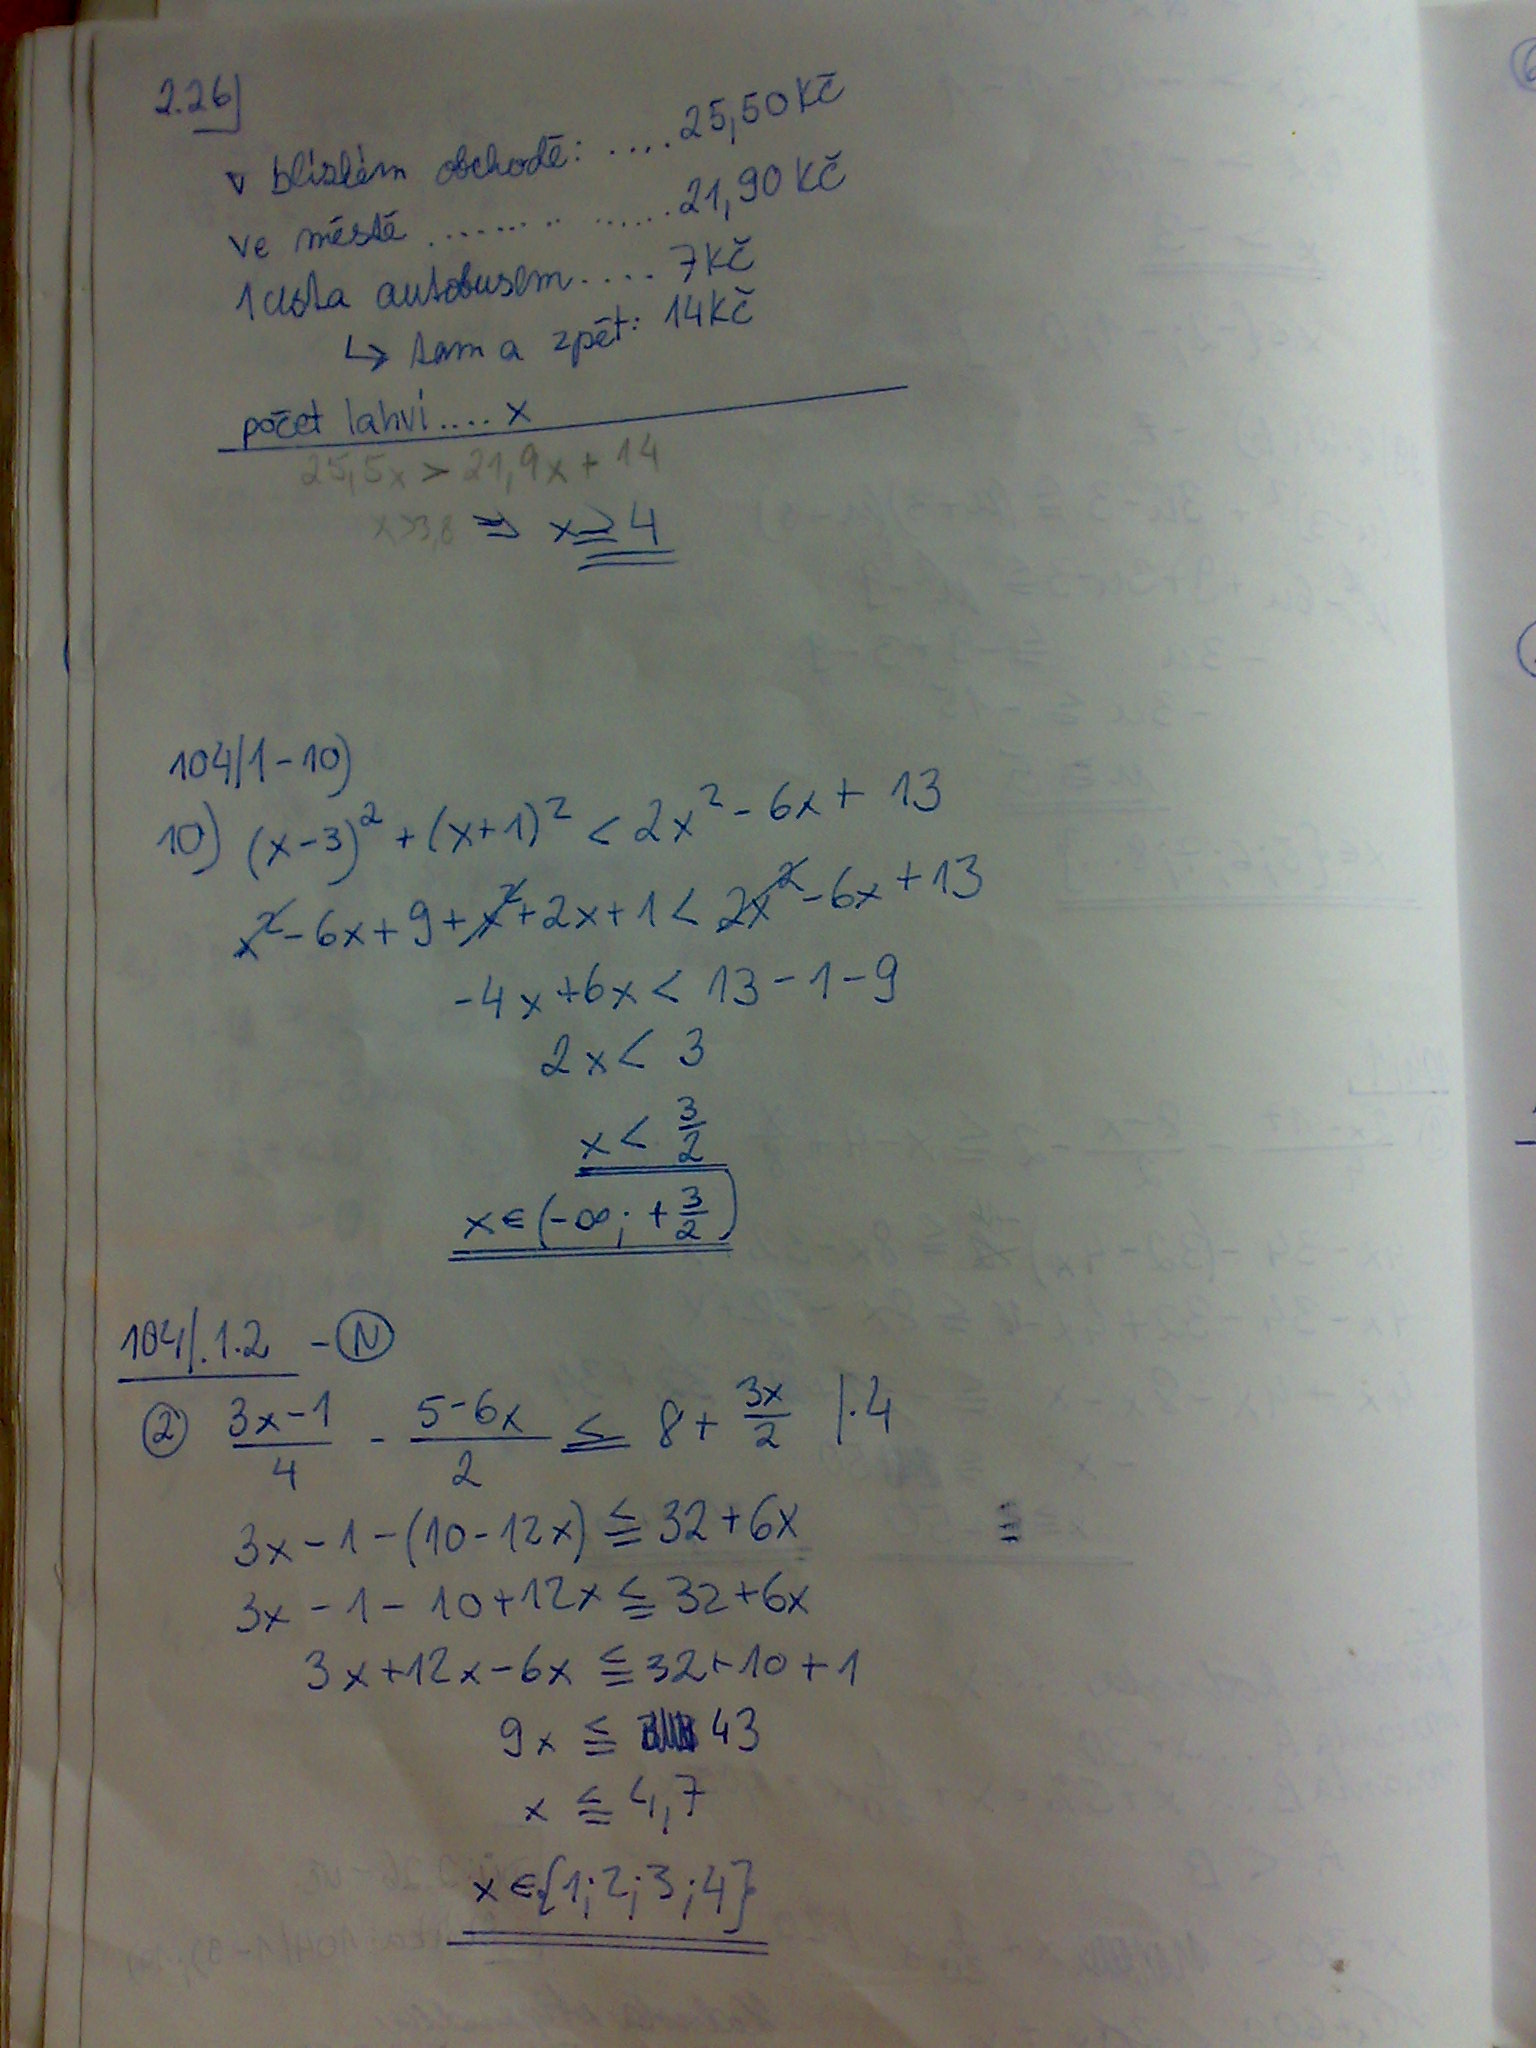 2.26)
v blízkém obchodě: .... 25,50 Kč
ve městě ............. 21,90 Kč
1 cesta autobusem.... 7 Kč
↳ tam a zpět: 14 Kč
počet lahví .... x
25,5x > 21,9x + 14
x>3,8 ⇒ x ≧ 4
104/1-10)
10) (x-3)² + (x+1)² < 2x² - 6x + 13
x² - 6x + 9 + x² + 2x + 1 < 2x² - 6x + 13
-4x + 6x < 13 - 1 - 9
2x < 3
x < 3/2
x ∈ (-∞; + 3/2)
104/.1.2 - N
② (3x-1)/4 - (5-6x)/2 ≤ 8 + 3x/2 /·4
3x - 1 - (10 - 12x) ≦ 32 + 6x ≦
3x - 1 - 10 + 12x ≦ 32 + 6x
3x + 12x - 6x ≦ 32 + 10 + 1
9x ≦ 43
x ≦ 4,7
x ∈ {1; 2; 3; 4}